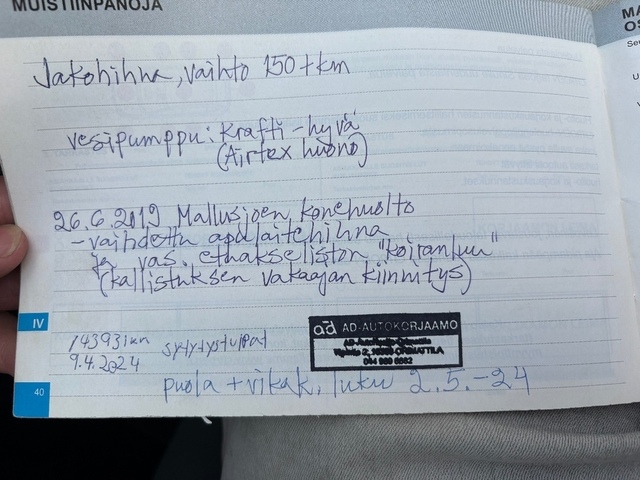 MUISTIINPANOJA
Jakohihna, vaihto 150 tkm
vesipumppu: Krafti - hyvä
(Airtex huono)
26.6.2019 Mallusjoen konehuolto
- vaihdettu apulaitehihna
ja vas. etuakseliston "koiranluu"
(kallistuksen vakaajan kiinnitys)
IV
143931km sytytystulpat
9.4.2024
ad AD-AUTOKORJAAMO
ORIMATTILA
puola + vikak. luku 2.5.-24
40